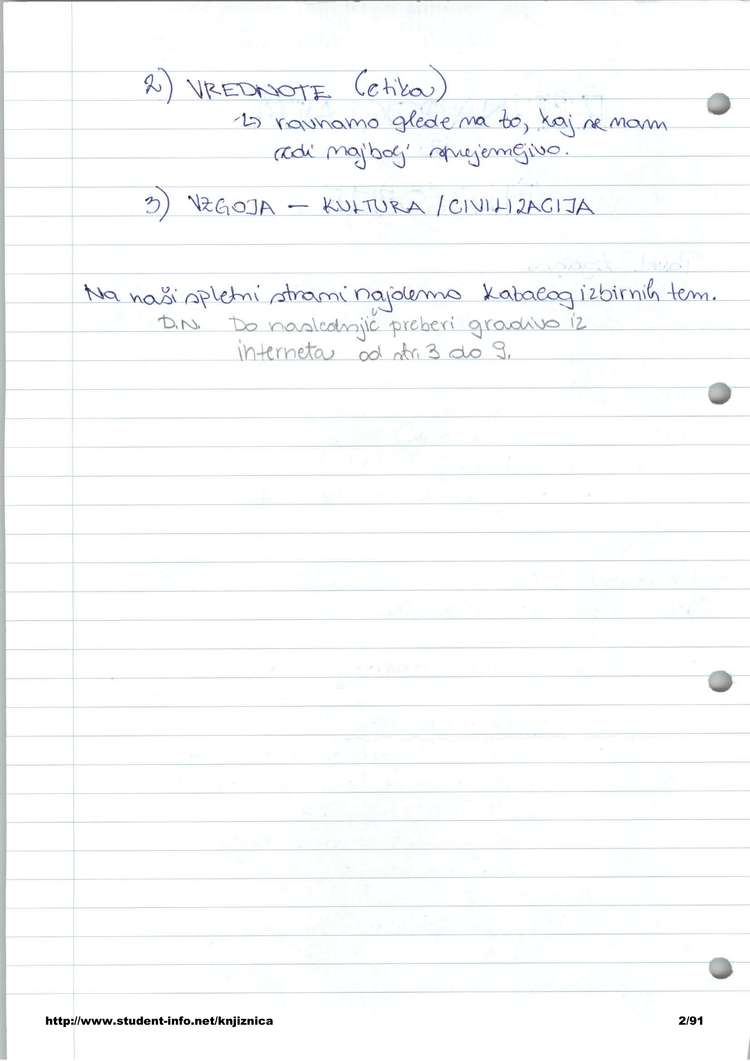 2) VREDNOTE (etika)
↳ ravnamo glede na to, kaj se nam
zdi najbolj sprejemljivo.
3) VZGOJA – KULTURA / CIVILIZACIJA
Na naši spletni strani najdemo katalog izbirnih tem.
D.N. Do naslednjič preberi gradivo iz
interneta od str. 3 do 9.
http://www.student-info.net/knjiznica
2/91